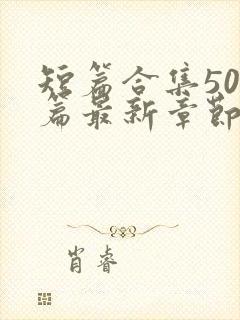 短篇合集50
篇最新章節
肖睿